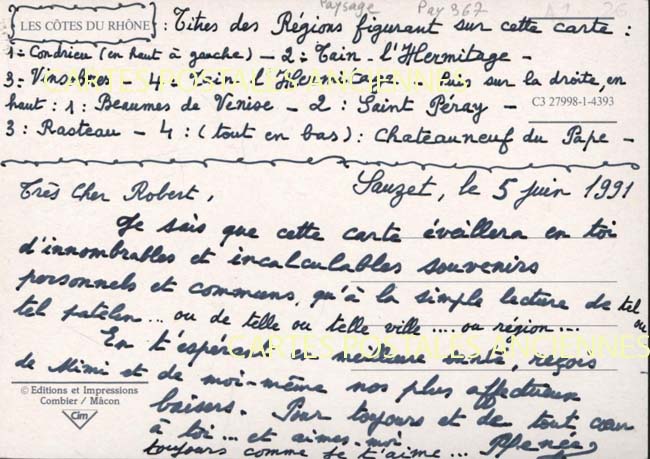 Paysage Pay 367
LES CÔTES DU RHÔNE : Titres des Régions figurant sur cette carte :
1 = Condrieu (en haut à gauche) - 2 = Tain - l'Hermitage -
3 = Vinsobres - 4 = Tain l'Hermitage. Puis sur la droite, en
haut : 1 : Beaumes de Venise - 2 : Saint Péray -
C3 27998-1-4393
3 : Rasteau - 4 : (tout en bas) : Chateauneuf du Pape -
CARTES POSTALES ANCIENNES
Sauzet, le 5 juin 1991
Très Cher Robert,
Je sais que cette carte éveillera en toi
d'innombrables et incalculables souvenirs
personnels et communs, qu'à la simple lecture de tel ou
tel patelin... ou de telle ou telle ville .... ou région ...
En t'espérant en meilleure santé, reçois
CARTES POSTALES ANCIENNES
de Mimi et de moi-même nos plus affectueux
baisers. Pour toujours et de tout cœur
à toi ... et aimes-moi
toujours comme je t'aime ...
© Editions et Impressions
Combier / Mâcon
Cim